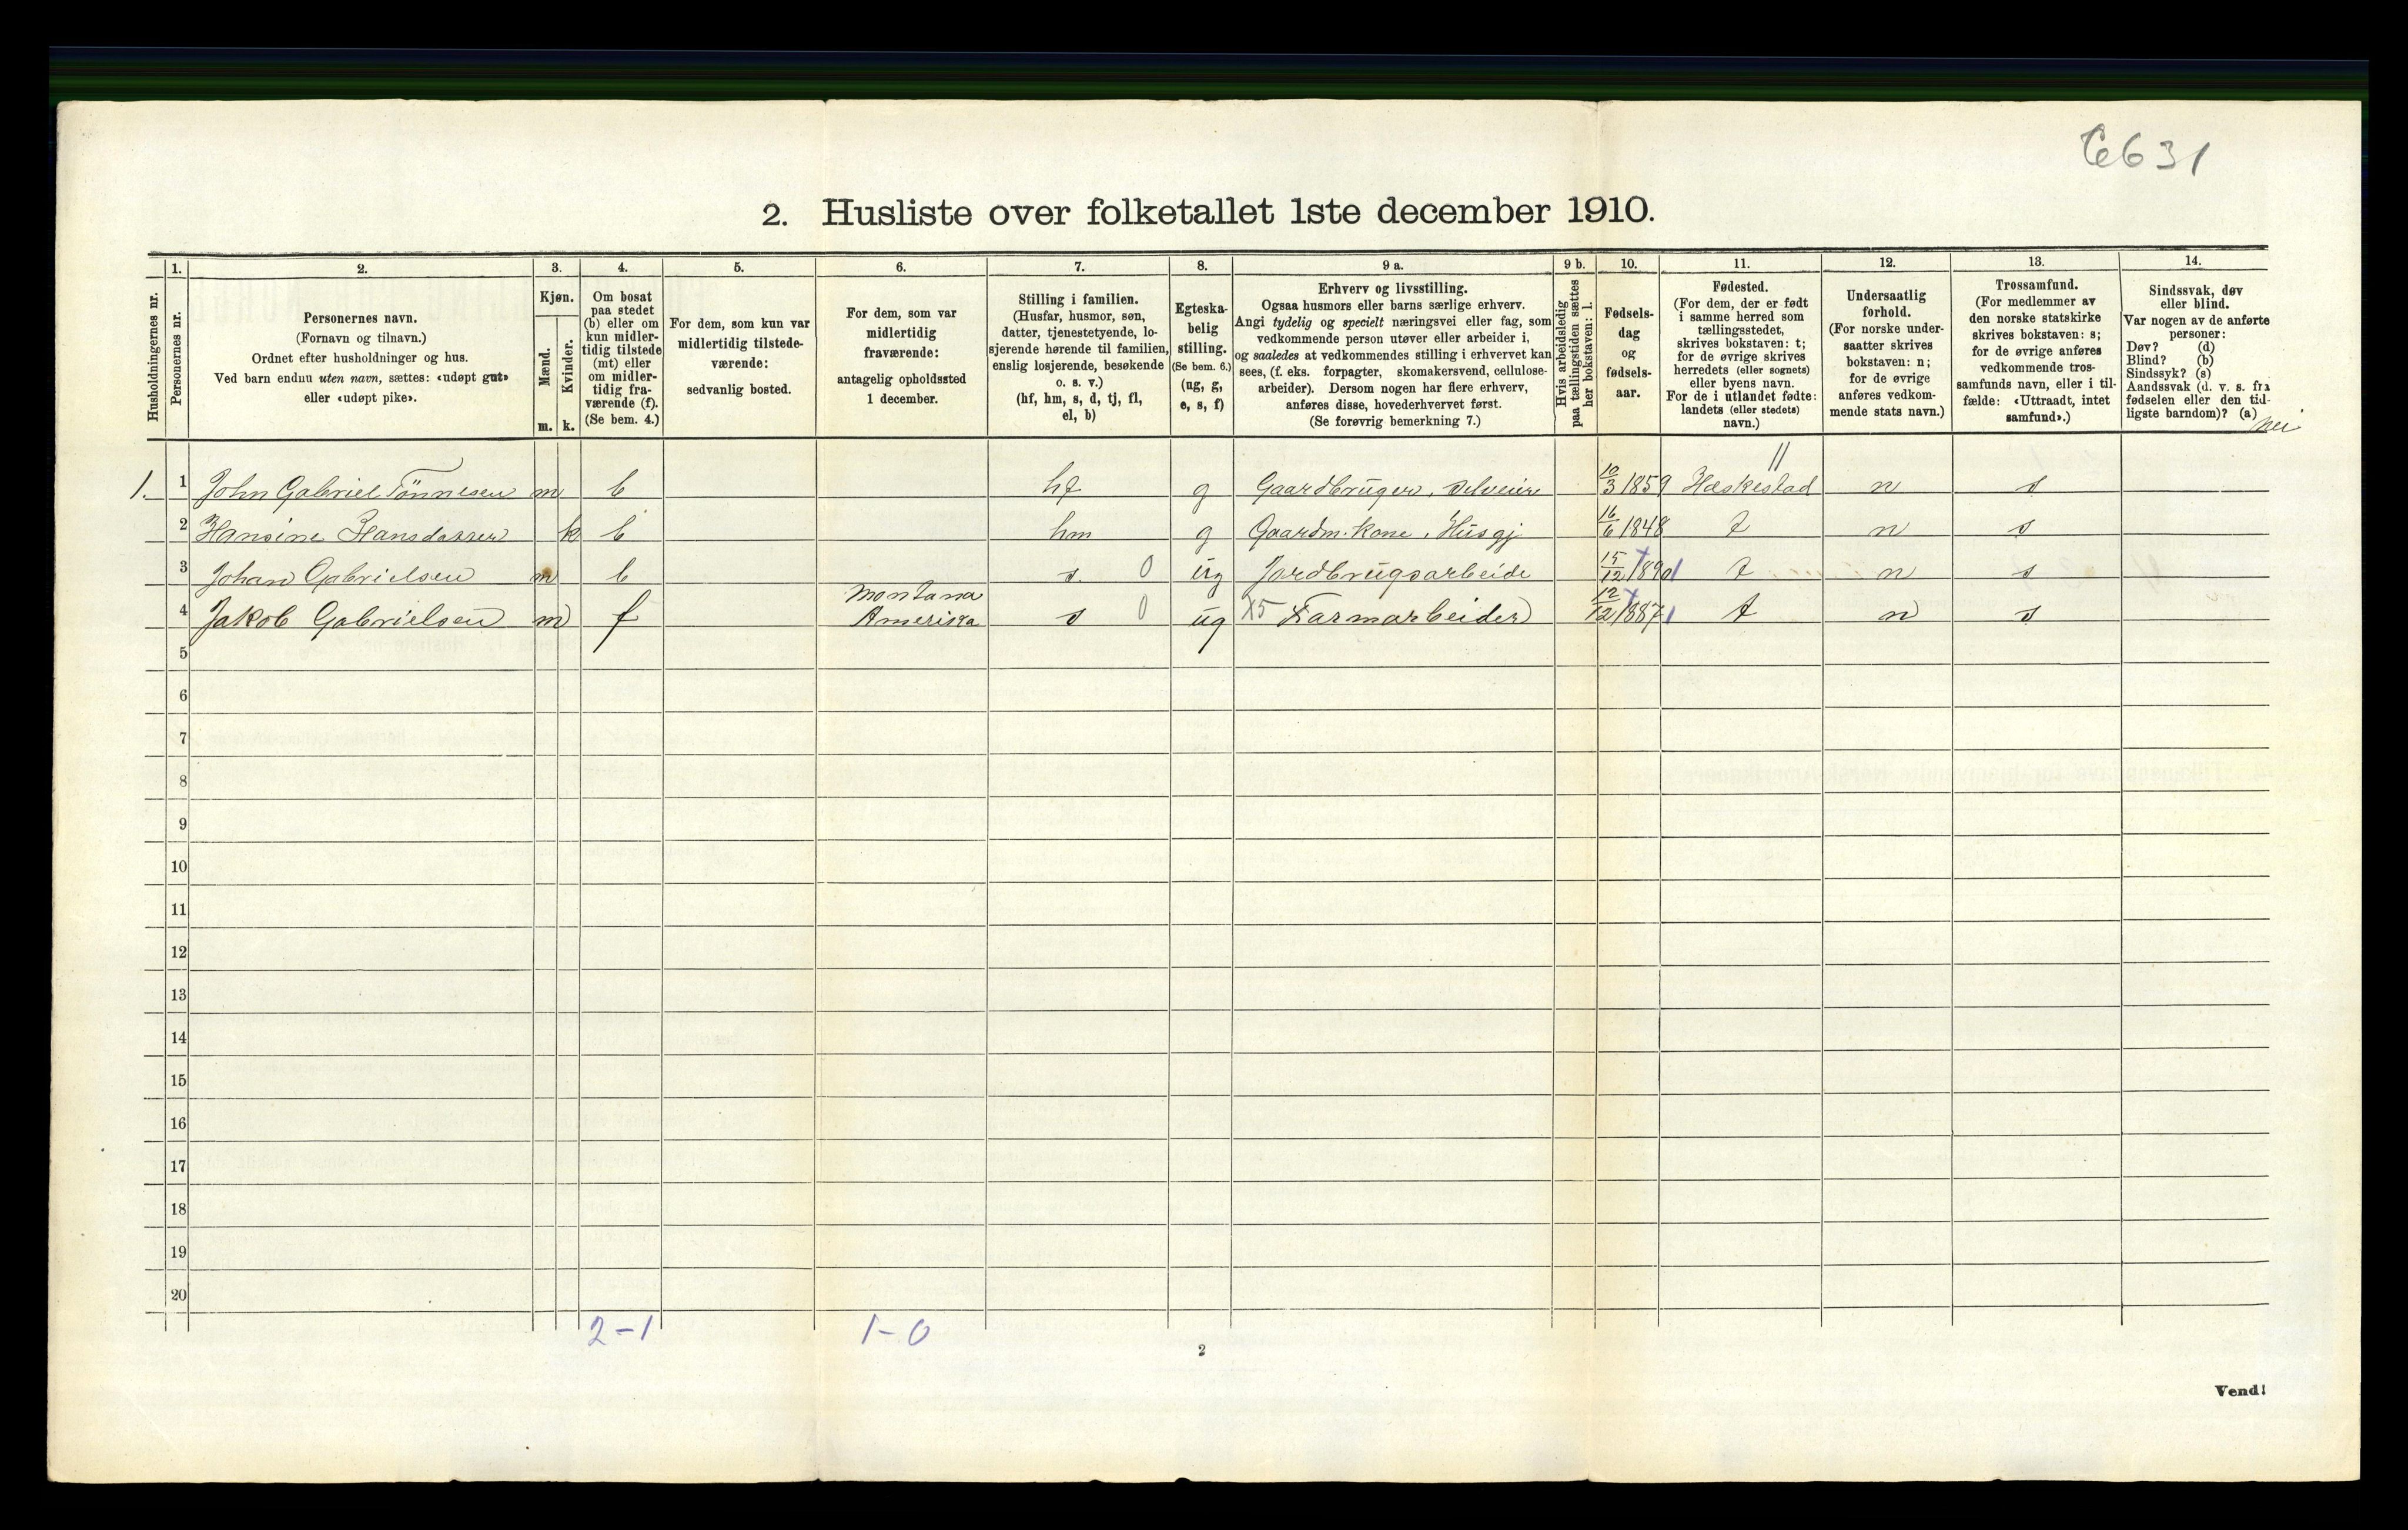 C631
2. Husliste over folketallet 1ste december 1910.
Husholdningernes nr.
1.
Personernes nr.
2.
Personernes navn.
(Fornavn og tilnavn.)
Ordnet efter husholdninger og hus.
Ved barn endnu uten navn, sættes: «udøpt gut»
eller «udøpt pike».
3.
Kjøn.
Mænd.
Kvinder.
m. k.
4.
Om bosat
paa stedet
(b) eller om
kun midler-
tidig tilstede
(mt) eller
om midler-
tidig fra-
værende (f).
(Se bem. 4.)
5.
For dem, som kun var
midlertidig tilstede-
værende:
sedvanlig bosted.
6.
For dem, som var
midlertidig
fraværende:
antagelig opholdssted
1 december.
7.
Stilling i familien.
(Husfar, husmor, søn,
datter, tjenestetyende, lo-
sjerende hørende til familien,
enslig losjerende, besøkende
o. s. v.)
(hf, hm, s, d, tj, fl,
el, b)
8.
Egteska-
belig
stilling.
(Se bem. 6.)
(ug, g,
e, s, f)
9 a.
Erhverv og livsstilling.
Ogsaa husmors eller barns særlige erhverv.
Angi tydelig og specielt næringsvei eller fag, som
vedkommende person utøver eller arbeider i,
og saaledes at vedkommendes stilling i erhvervet kan
sees, (f. eks. forpagter, skomakersvend, cellulose-
arbeider). Dersom nogen har flere erhverv,
anføres disse, hovederhvervet først.
(Se forøvrig bemerkning 7.)
9 b.
Hvis arbeidsledig
paa tællingstiden sættes
her bokstaven: l.
10.
Fødsels-
dag
og
fødsels-
aar.
11.
Fødested.
(For dem, der er født
i samme herred som
tællingsstedet,
skrives bokstaven: t;
for de øvrige skrives
herredets (eller sognets)
eller byens navn.
For de i utlandet fødte:
landets (eller stedets)
navn.)
12.
Undersaatlig
forhold.
(For norske under-
saatter skrives
bokstaven: n;
for de øvrige
anføres vedkom-
mende stats navn.)
13.
Trossamfund.
(For medlemmer av
den norske statskirke
skrives bokstaven: s;
for de øvrige anføres
vedkommende tros-
samfunds navn, eller i til-
fælde: «Uttraadt, intet
samfund».)
14.
Sindssvak, døv
eller blind.
Var nogen av de anførte
personer:
Døv? (d)
Blind? (b)
Sindssyk? (s)
Aandssvak (d. v. s. fra
fødselen eller den tid-
ligste barndom)? (a)
nei
11
1. 1 John Gabriel Tönnesen m b hf g Gaardbruger, Selveier 10/3 1859 Heskestad n s
2 Hansine Hansdatter k b hm g Gaardm. Kone, Husgj 16/6 1848 t n s
3 Johan Gabrielsen m b s 0 ug Jordbrugsarbeide 15/12 1890 t n s
4 Jakob Gabrielsen m f Montana Amerika s 0 ug X5 Farmarbeider 12/12 1887 t n s
5
6
7
8
9
10
11
12
13
14
15
16
17
18
19
20
2-1 1-0
2
Vend!